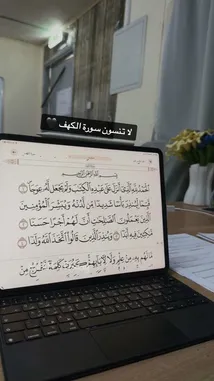 لا تنسون سورة الكهف 🖤
بِسْمِ ٱللَّهِ ٱلرَّحْمَٰنِ ٱلرَّحِيمِ
ٱلْحَمْدُ لِلَّهِ ٱلَّذِىٓ أَنزَلَ عَلَىٰ عَبْدِهِ ٱلْكِتَٰبَ وَلَمْ يَجْعَل لَّهُۥ عِوَجَا ١
قَيِّمًا لِّيُنذِرَ بَأْسًا شَدِيدًا مِّن لَّدُنْهُ وَيُبَشِّرَ ٱلْمُؤْمِنِينَ
ٱلَّذِينَ يَعْمَلُونَ ٱلصَّٰلِحَٰتِ أَنَّ لَهُمْ أَجْرًا حَسَنًا ٢
مَّٰكِثِينَ فِيهِ أَبَدًا ٣ وَيُنذِرَ ٱلَّذِينَ قَالُوا۟ ٱتَّخَذَ ٱللَّهُ وَلَدًا ٤
مَّا لَهُم بِهِۦ مِنْ عِلْمٍ وَلَا لِءَابَآئِهِمْ كَبُرَتْ كَلِمَةً تَخْرُجُ مِنْ